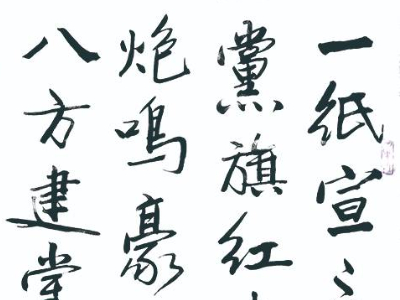 一纸宣
黨旗红
炮鸣豪
八方建